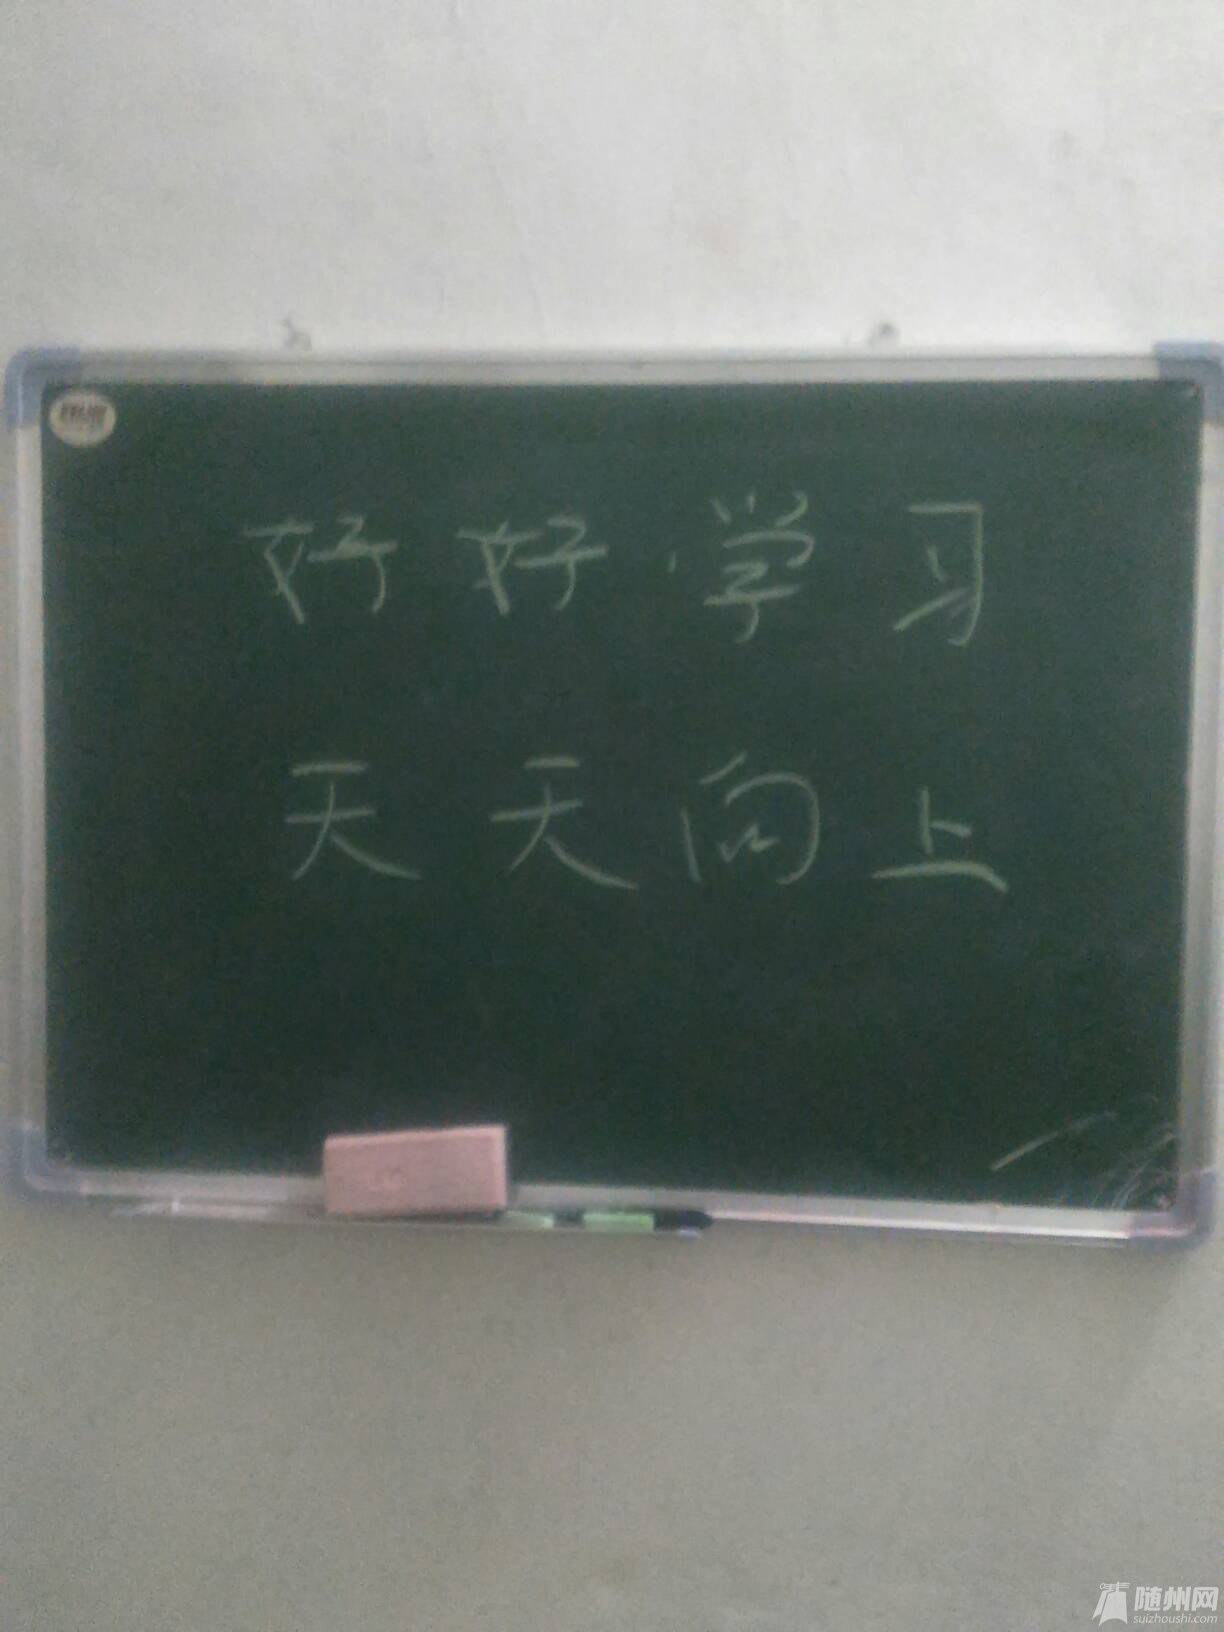 好好学习
天天向上
随州网
suizhoushi.com